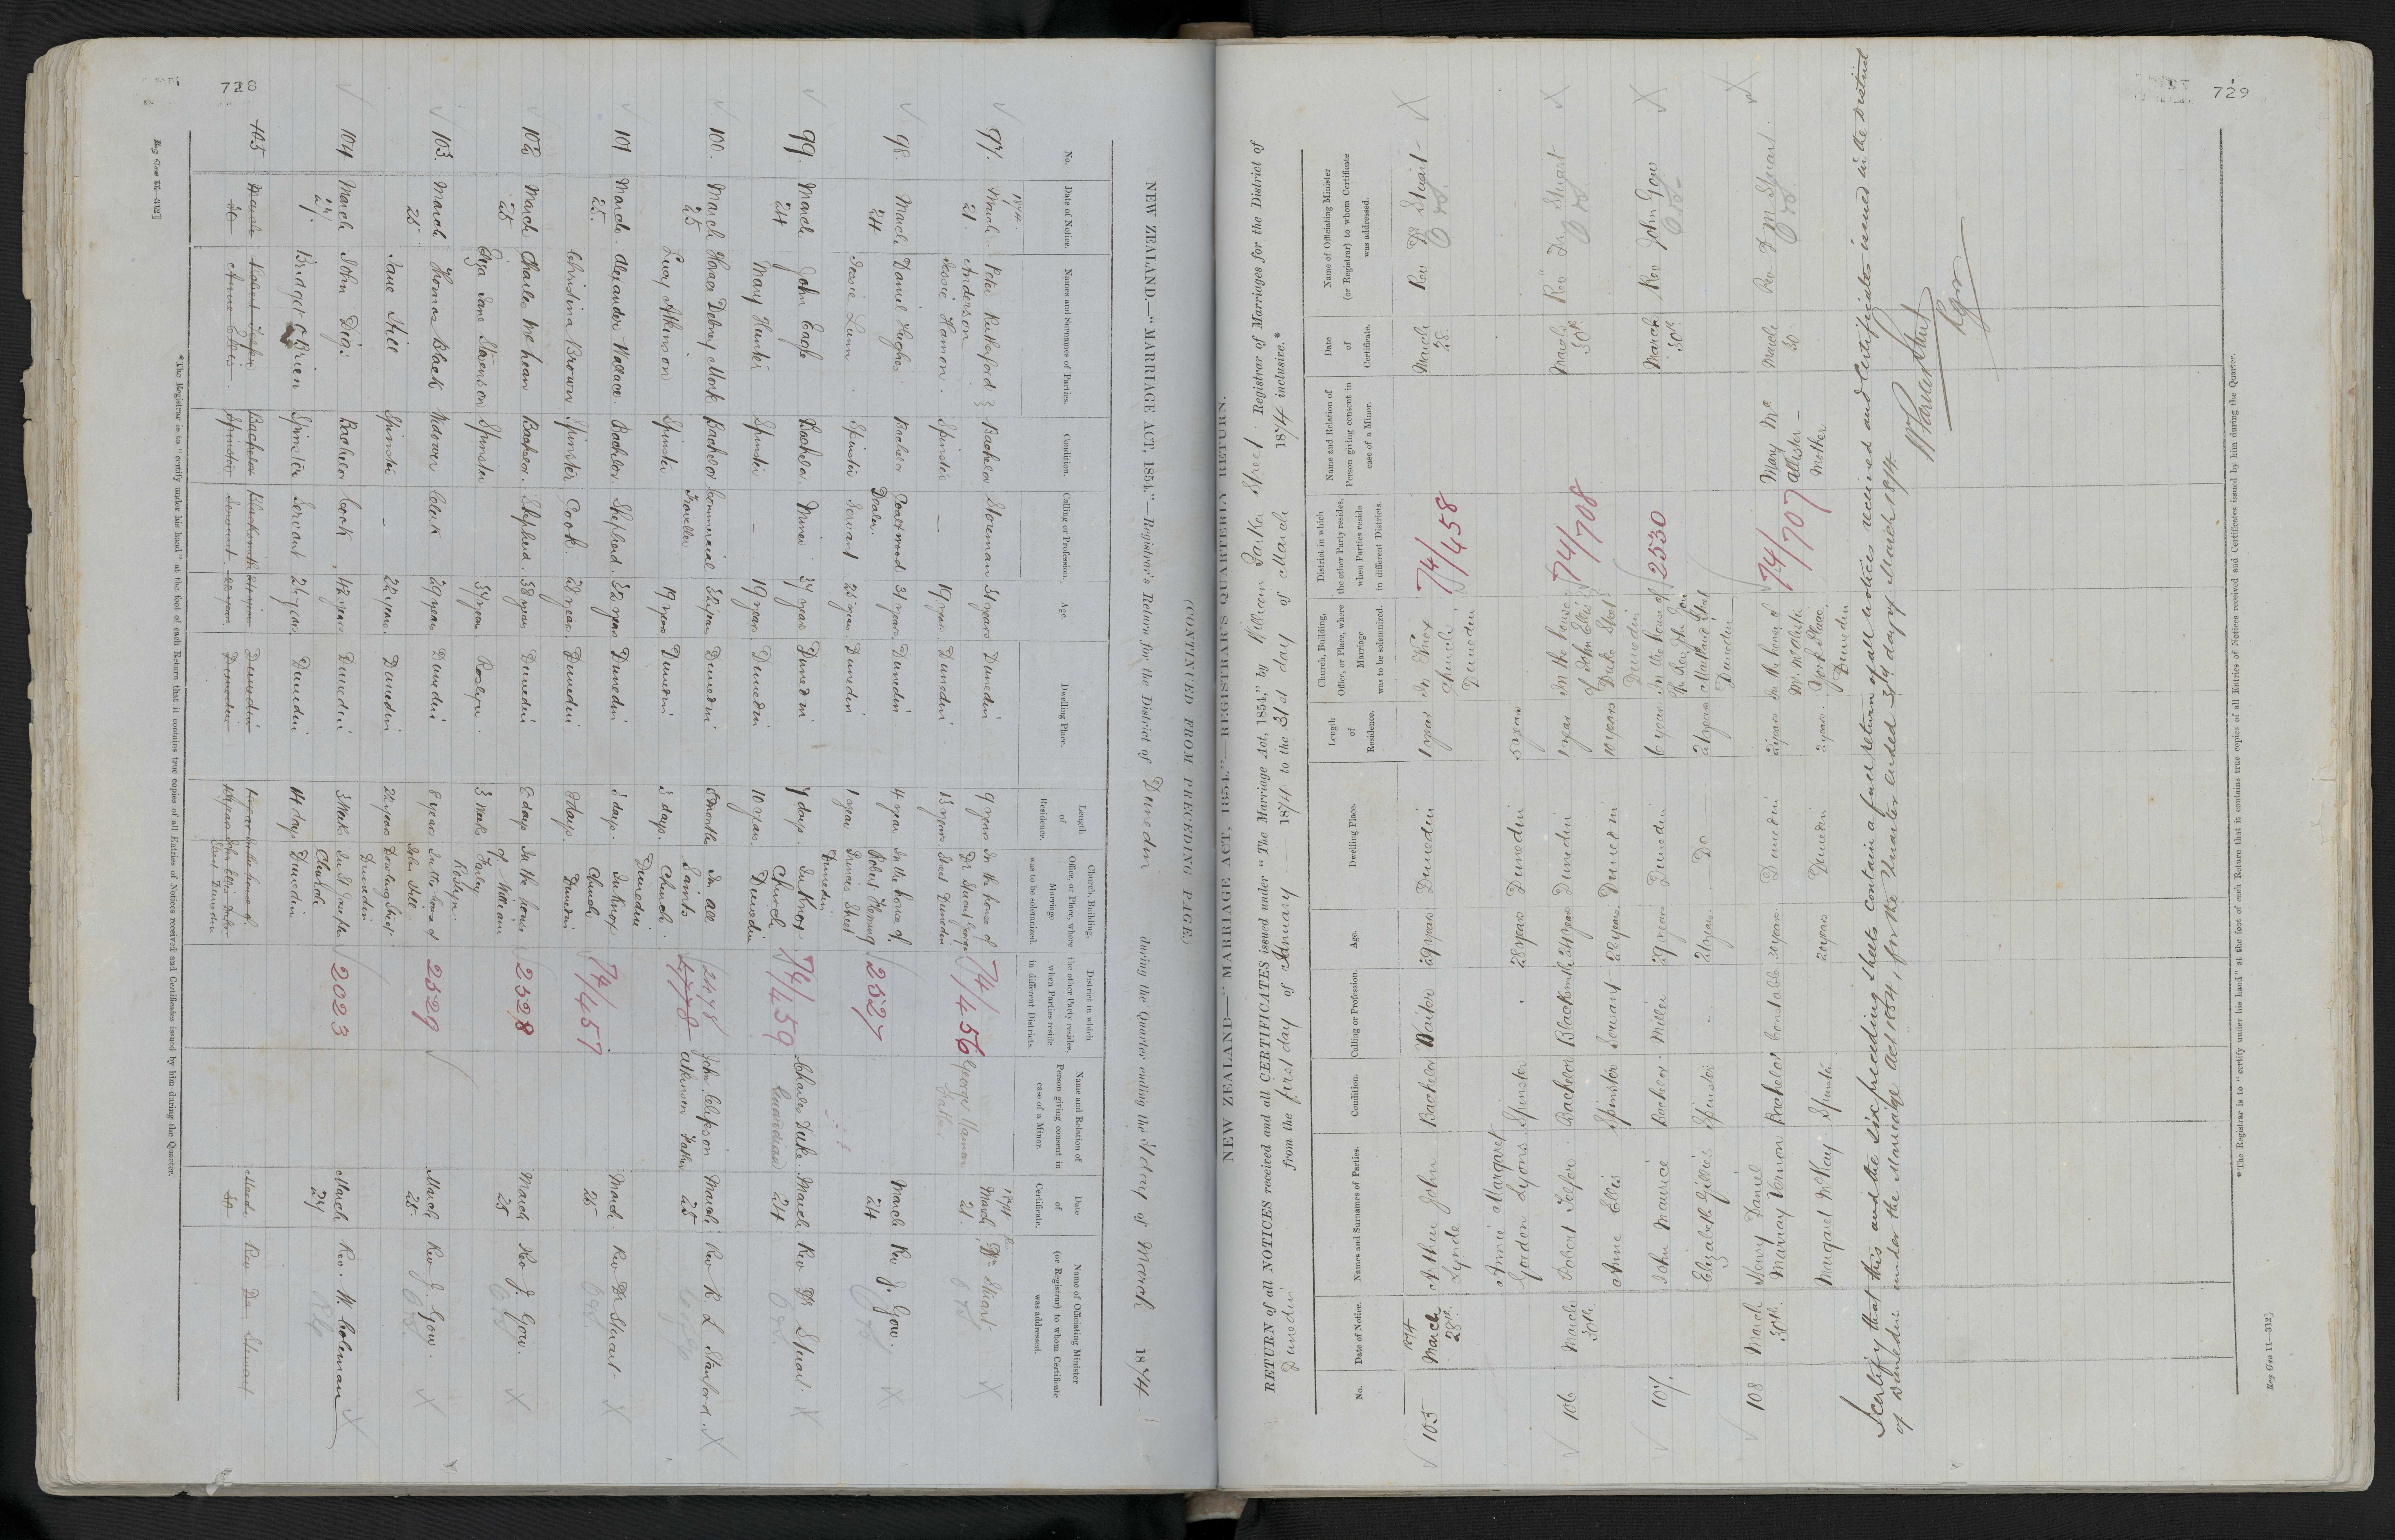 728
(CONTINUED FROM PRECEDING PAGE.)
NEW ZEALAND.—"MARRIAGE ACT, 1854."—Registrar's Return for the District of Dunedin during the Quarter ending the 31 day of March 1874.
No.
Date of Notice.
Names and Surnames of Parties.
Condition.
Calling or Profession.
Age.
Dwelling Place.
Length of Residence.
Church, Building, Office or Place, where Marriage was to be solemnized.
District in which the other Party resides, when Parties reside in different Districts.
Name and Relation of Person giving consent in case of a Minor.
Date of Certificate.
Name of Officiating Minister (or Registrar) to whom Certificate was addressed.
97. 1874 March 21. Peter Rutherford Anderson Bachelor Storeman 31 years Dunedin 9 years In the house of Dr Stuart George Street Dunedin 74/456 George Hamon Father 1874 March 21. Dr Stuart
Jessie Hamon. Spinster — 19 years Dunedin 13 years
98. March 24 Daniel Hughes Bachelor Coal & wood Dealer 31 years Dunedin 4 years In the house of Robert Fleming Princes Street Dunedin 2527 March 24 Rev J. Gow.
Jessie Lunn. Spinster Servant 25 years. Dunedin 1 year
99. March 24 John Eagle Bachelor. Miner 37 years Dunedin 7 days. In Knox Church Dunedin 74/459 Charles Duke Guardian March 24 Rev Dr Stuart.
May Hunter Spinster — 19 years Dunedin 10 years
100. March 25 Horace Debny Monk Bachelor Commercial Traveller 32 years Dunedin 5 months In All Saints Church. Dunedin 2478 John Clepson Atkinson Father March 25 Rev R L Stanford.
Lucy Atkinson Spinster 19 years Dunedin 3 days.
101 March. 25. Alexander Wallace. Bachelor. Shepherd. 32 years Dunedin 3 days. In Knox Church Dunedin 74/457 March 25 Rev Dr Stuart
Christina Brown Spinster Cook. 28 years Dunedin 8 days.
102 March 25 Charles McLean Bachelor. Shepherd. 38 years Dunedin 8 days In the house of William Farley Roslyn. 2528 March 25 Rev J. Gow.
Eliza Jane Stevenson Spinster 34 years Roslyn. 3 weeks
103. March 25. Thomas Black Widower Clerk 29 years Dunedin 8 years In the house of John Hill Dowling Street Dunedin 2529 March 25. Rev J. Gow.
Jane Hill Spinster — 22 years. Dunedin 22 years
104 March 27. John Dig. Bachelor Cook, 42 years Dunedin 3 weeks In St Josephs Church Dunedin 2023 March 27 Rev. W. Coleman
Bridget O'Brien Spinster Servant 26 years. Dunedin 14 days
105 March 30 Robert Telfer Bachelor Blacksmith 24 years Dunedin 1 year In the house of John Ellis Duke Street Dunedin March 30 Rev Dr Stewart
Anne Ellis. Spinster Servant. 22 years. Dunedin 10 years
*The Registrar is to "certify under his hand" at the foot of each Return that it contains true copies of all Entries of Notices received and Certificates issued by him during the Quarter.
Reg Gen 55—312]
729
NEW ZEALAND—"MARRIAGE ACT, 1854."—REGISTRAR'S QUARTERLY RETURN.
RETURN of all NOTICES received and all CERTIFICATES issued under "The Marriage Act, 1854," by William Parker Street. Registrar of Marriages for the District of
Dunedin from the first day of January 1874 to the 31st day of March 1874 inclusive.*
No.
Date of Notice.
Names and Surnames of Parties.
Condition.
Calling or Profession.
Age.
Dwelling Place.
Length of Residence.
Church, Building, Office, or Place, where Marriage was to be solemnized.
District in which the other Party resides, when Parties reside in different Districts.
Name and Relation of Person giving consent in case of a Minor.
Date of Certificate.
Name of Officiating Minister (or Registrar) to whom Certificate was addressed.
105 1874 March 28th. Arthur John Lynde Bachelor Waiter 29 years Dunedin 1 year In Knox Church, Dunedin 74/458 March 28. Rev Dr Stuart
Annie Margaret Gordon Lyons. Spinster 28 years Dunedin 5 years
106 March 30th Robert Telfer. Bachelor Blacksmith 24 years Dunedin 1 year In the house of John Ellis Duke Street Dunedin 74/708 March 30th Rev Dr Stuart
Anne Ellis Spinster Servant 22 years. Dunedin 10 years
107. John Maurice Bachelor. Miller 29 years Dunedin 6 years In the house of the Rev John Gow Maitland Street Dunedin 2530 March 30th. Rev John Gow
Elizabeth Gillies Spinster 21 years. Do 21 years
108 March 30th Henry Daniel Murray Vernon Bachelor Constable 30 years Dunedin 2 years In the house of Mr McAlister York Place, Dunedin 74/707 Mary McAllister — Mother March 30. Rev D M Stuart.
Margaret McKay Spinster 20 years Dunedin 2 years.
I certify that this and the six preceding sheets contain a full return of all notices received and Certificates issued in the District
of Dunedin under the Marriage Act 1854, for the Quarter ended 31st day of March 1874
W Parker Street
Rgr
*The Registrar is to "certify under his hand" at the foot of each Return that it contains true copies of all Entries of Notices received and Certificates issued by him during the Quarter.
Reg Gen 11—312]